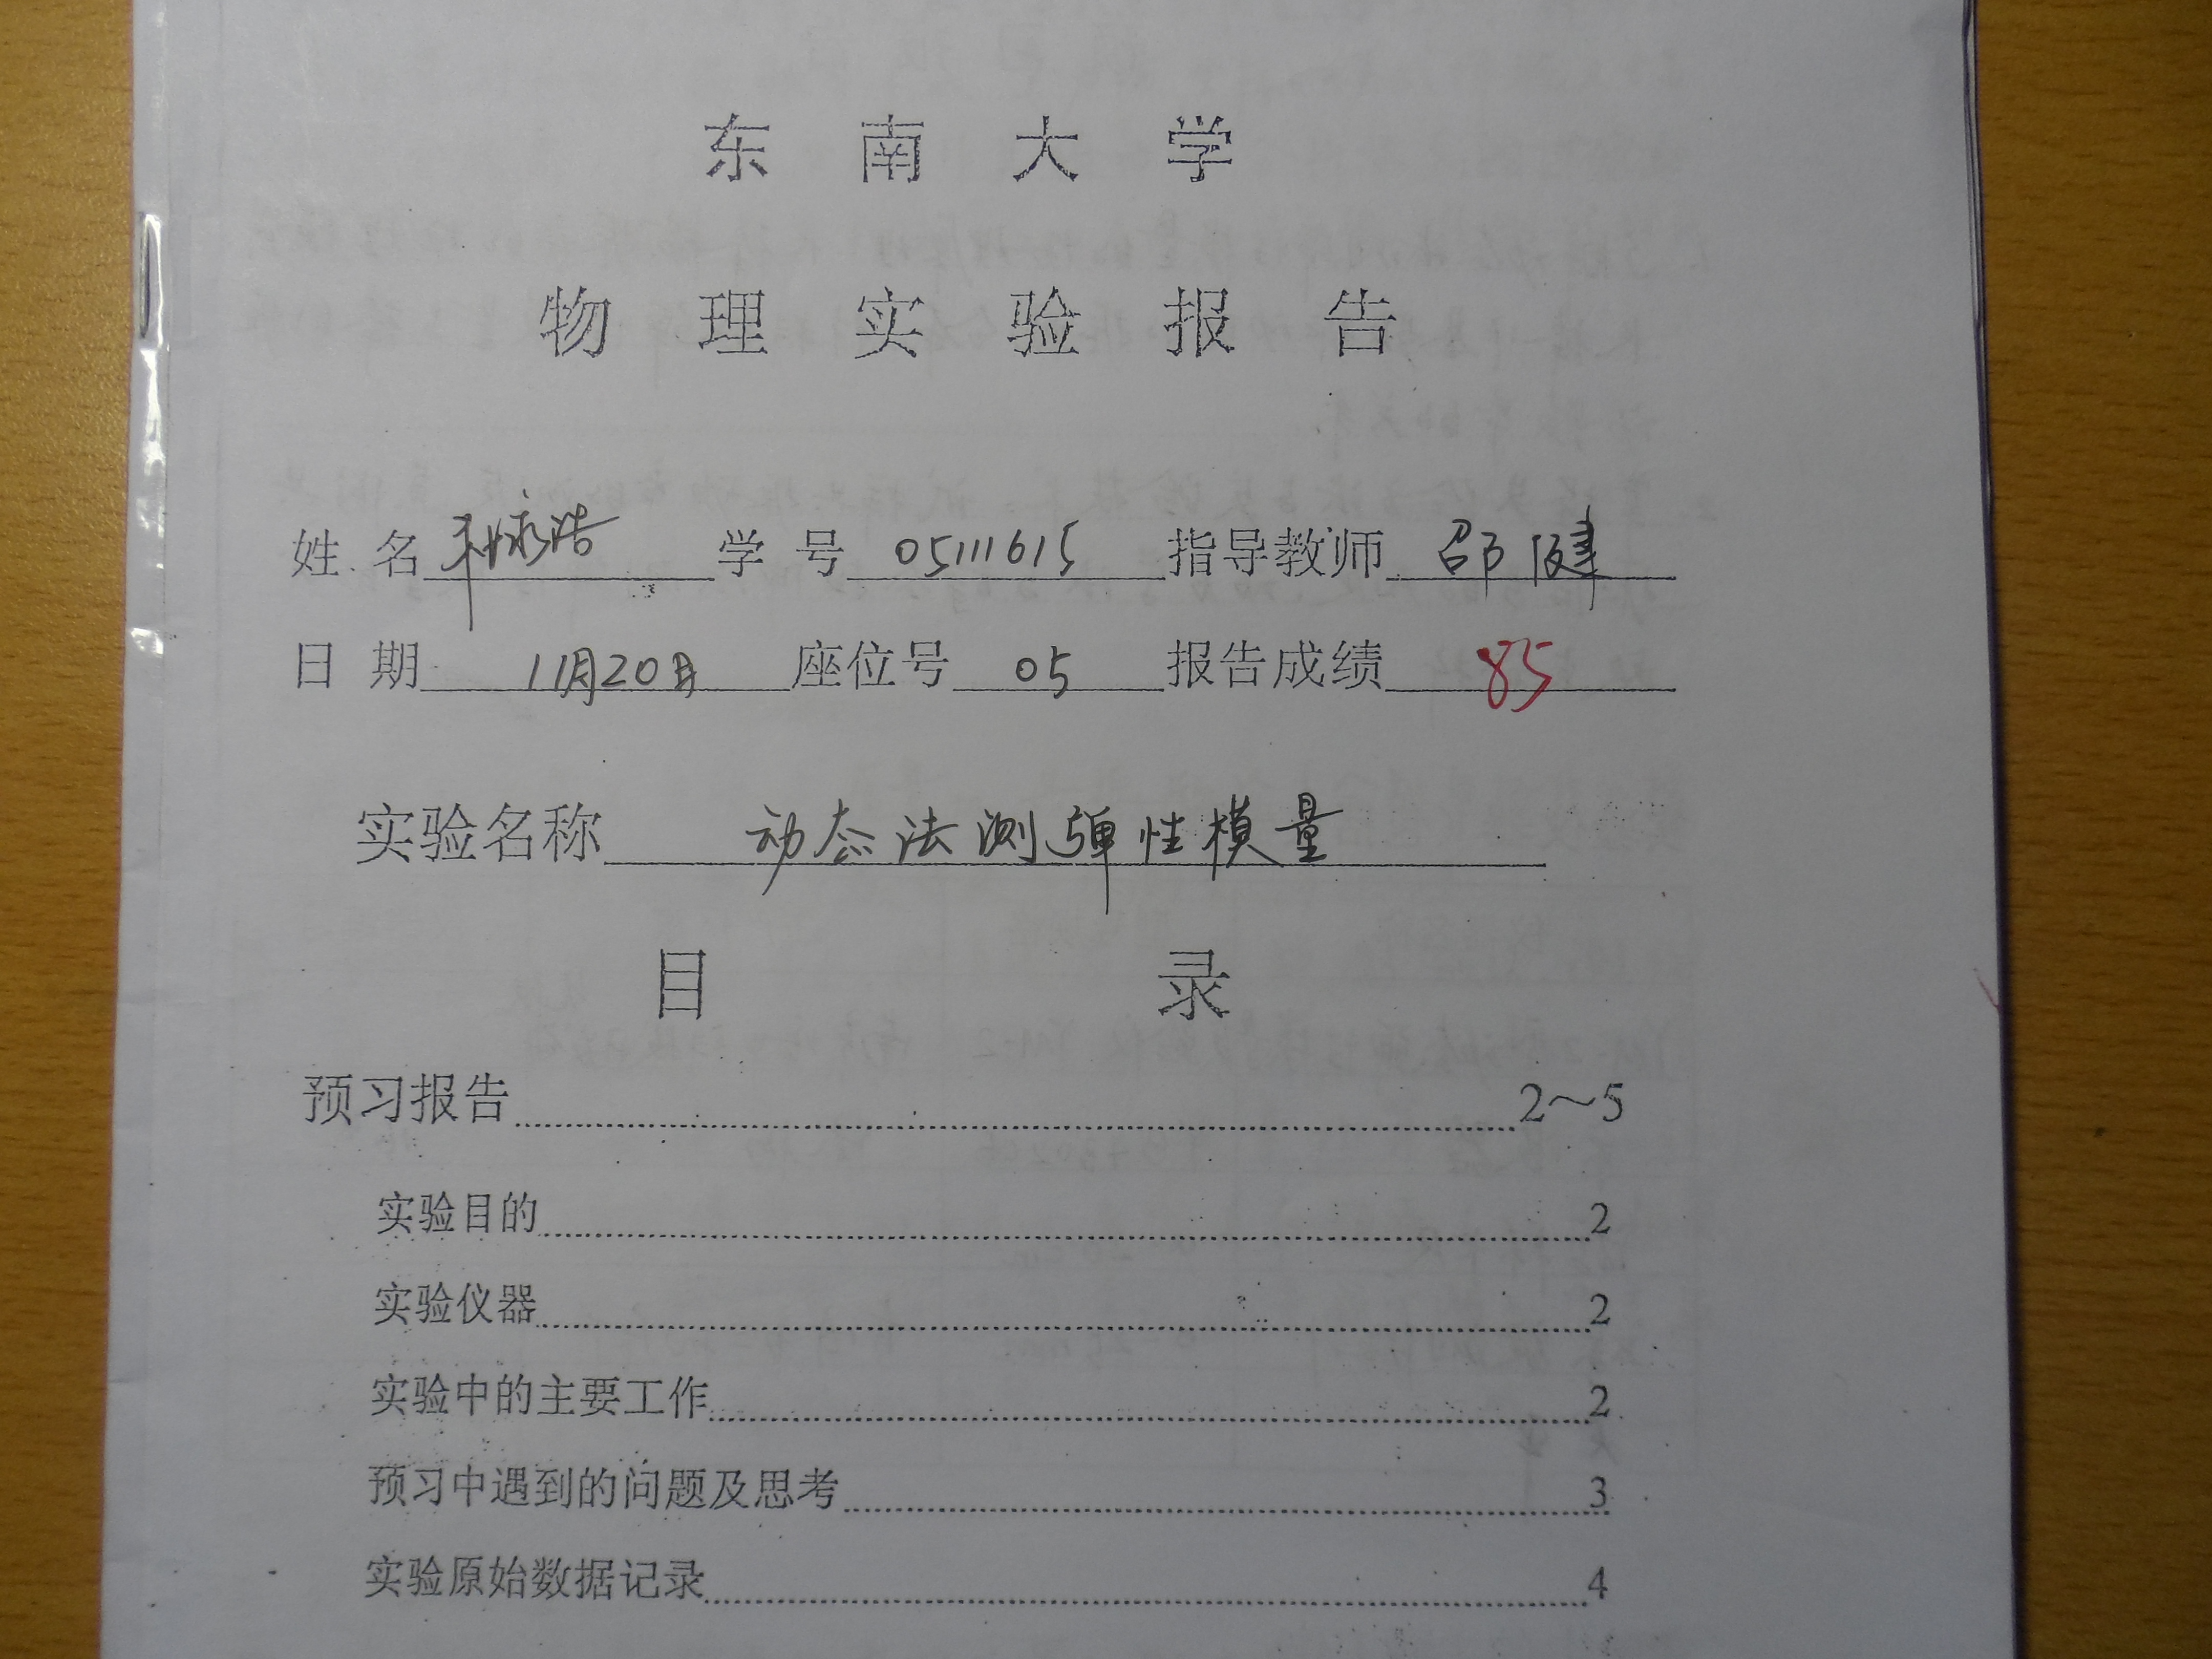 东南大学
物理实验报告
姓名 学号 05111615 指导教师 邵健
日期 11月20日 座位号 05 报告成绩 85
实验名称 动态法测弹性模量
目录
预习报告 2～5
实验目的 2
实验仪器 2
实验中的主要工作 2
预习中遇到的问题及思考 3
实验原始数据记录 4